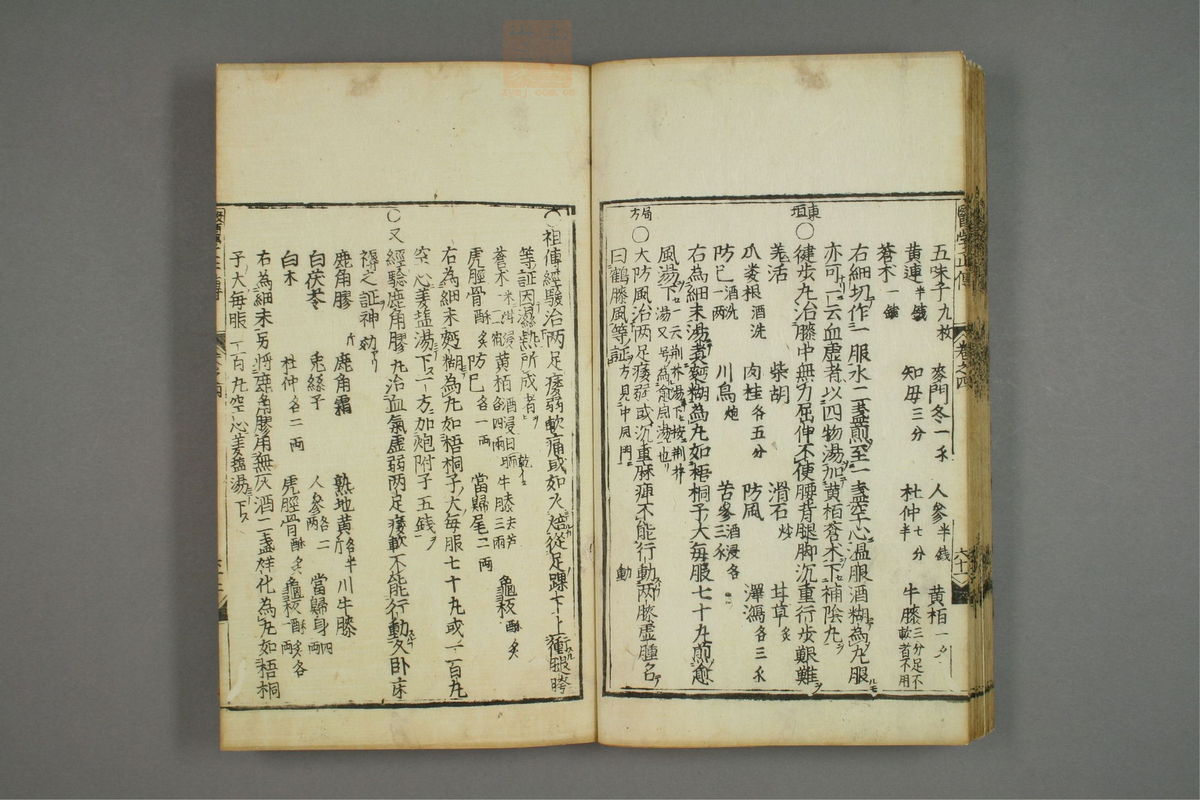 醫學正傳 卷之四 六十一
五味子九枚 麥門冬一錢 人參半錢 黃栢一夕
黃連半錢 知毋三分 杜仲七分半 牛膝三分足不軟者不用
蒼朮一錢
右細切作一服水二盞煎至一盞空心溫服酒糊為丸服
亦可一云血虛者以四物湯加黃栢蒼朮下補陰丸
東垣○健步丸治膝中無力屈伸不便腰背腿脚沉重行步艱難
羗活 柴胡 滑石炒 甘草炙
瓜蔞根酒洗 肉桂各五分 防風 澤瀉各三錢
防已酒洗一兩 川烏炮 苦參酒浸各三錢
右為細末湯煮麪糊為丸如梧桐子大每服七十丸煎愈
風湯下一云荆芥湯下按荆芥湯又号為愈風湯也
局方○大防風治兩足痿弱或沉重麻痺不能行動兩膝虛腫名
曰鶴膝風等証方見中風門
○祖傳經驗治兩足痿弱軟痛或如火焙從足踝下上衝腿胯
等証因濕熱所成者
蒼朮米泔浸一宿 黃栢酒浸日晒乾各四兩 牛膝去芦三兩 龜板酥炙
虎脛骨酥炙 防已各一兩 當歸尾二兩
右為細末麪糊為丸如梧桐子大每服七十丸或一百丸
空心姜塩湯下一方加炮附子五錢
○又經驗鹿角膠丸治血氣虛弱兩足痿軟不能行動久卧床
褥之証神効
鹿角膠一斤 鹿角霜 熟地黃各半斤 川牛膝
白茯苓 兎絲子 人參各二兩 當歸身四兩
白朮 杜仲各二兩 虎脛骨酥炙 龜板酥炙各一兩
右為細末另將鹿角膠用無灰酒二盞烊化為丸如梧桐
子大每服一百丸空心姜塩湯下